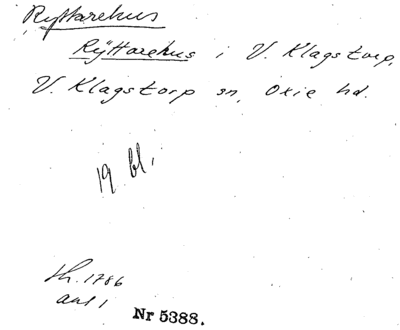 Ryttarehus
Rÿttarehus i V. Klagstorp,
V. Klagstorp sn, Oxie hd.
19 bl.
Sk. 1786
ant 1
Nr 5388.